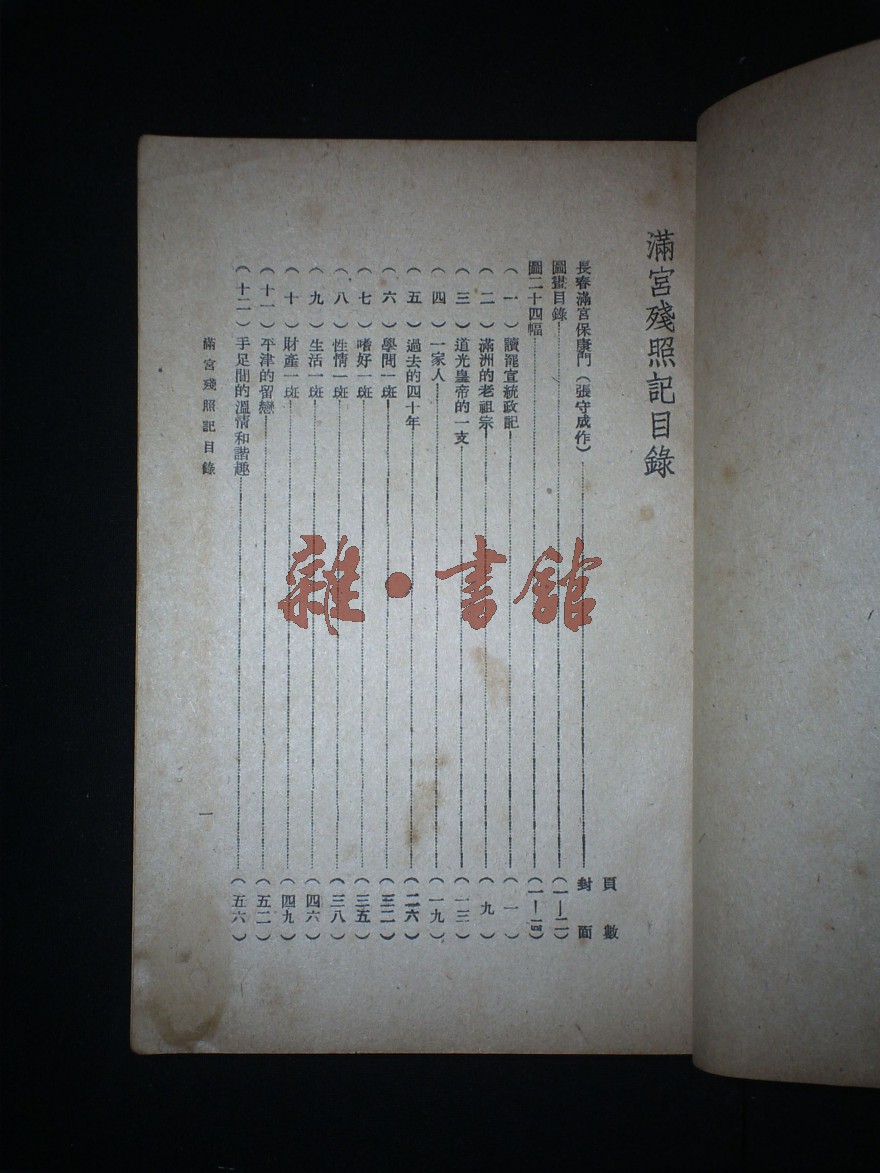 滿宮殘照記目錄
頁數
長春滿宮保康門（張守成作）……封面
圖畫目錄……（一—二）
圖二十四幅……
（一）讀罷宣統政記……（一）
（二）滿洲的老祖宗……（九）
（三）道光皇帝的一支……（一三）
（四）一家人……（一九）
（五）過去的四十年……（二六）
（六）學問一斑……（三二）
（七）嗜好一斑……（三五）
（八）性情一斑……（三八）
（九）生活一斑……（四六）
（十）財產一斑……（四九）
（十一）平津的留戀……（五二）
（十二）手足間的溫情和諧趣……（五六）
滿宮殘照記目錄
一
雜·書館